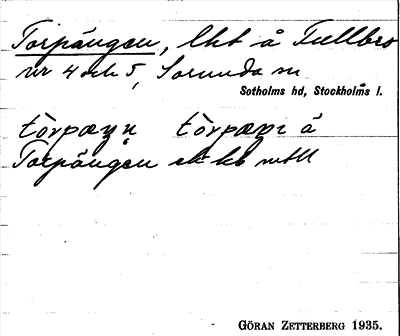 Torpängen, lht å Fullbro
nr 4 och 5, Sorunda sn
Sotholms hd, Stockholms l.
tòrpæŋn tòrpæŋı å
Torpängen
GÖRAN ZETTERBERG 1935.